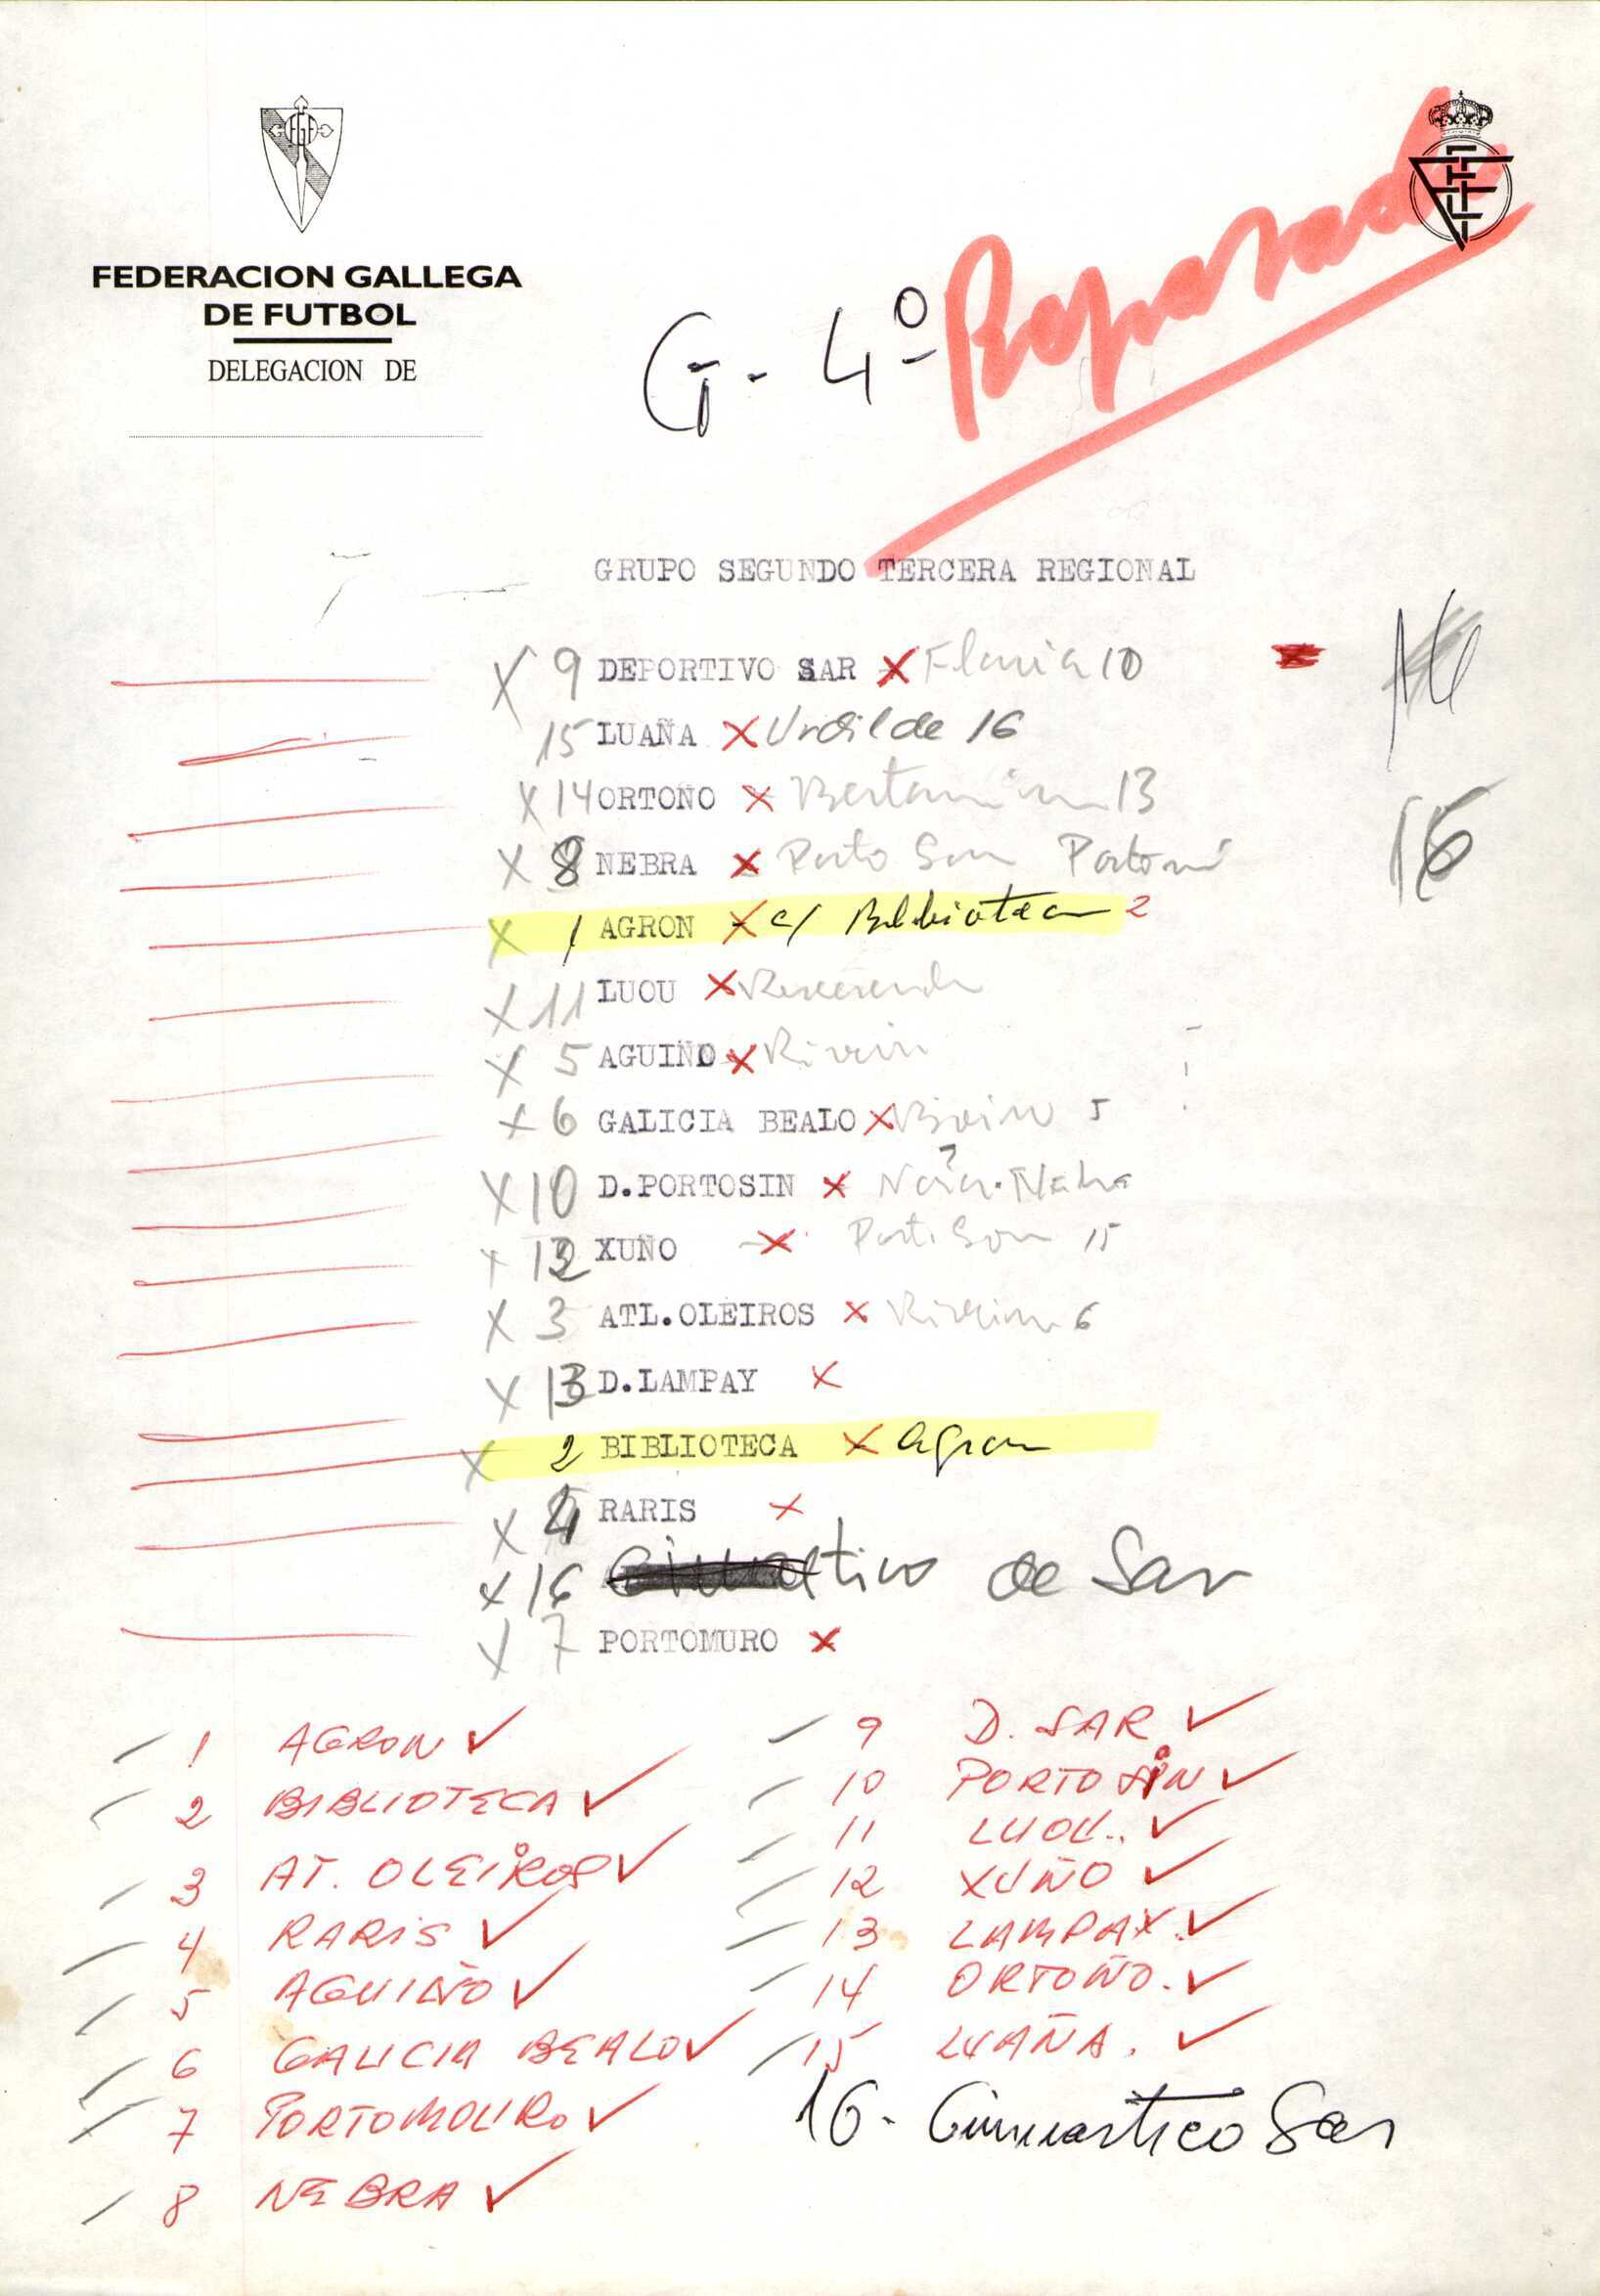 FEDERACION GALLEGA
DE FUTBOL
DELEGACION DE
G- 4º Repasado
GRUPO SEGUNDO TERCERA REGIONAL
X 9 DEPORTIVO SAR X Flavia 10
15 LUAÑA X Urdilde 16
X 14 ORTOÑO X Bertamiram 13
16
X 8 NEBRA X Porto Son Portosin
X 1 AGRON X c/ Biblioteca 2
X 11 LUOU X
X 5 AGUIÑO X Riveira
X 6 GALICIA BEALO X Boiro 5
X 10 D.PORTOSIN X Noia-Nebra
X 12 XUÑO X Porto Son 15
X 3 ATL.OLEIROS X Riveira 6
X 13 D.LAMPAY X
X 2 BIBLIOTECA X Agron
X 4 RARIS X
X 16 de Sar
X 7 PORTOMURO X
1 AGRON ✓
2 BIBLIOTECA ✓
3 AT. OLEIROS ✓
4 RARIS ✓
5 AGUIÑO ✓
6 GALICIA BEALO ✓
7 PORTOMOURO ✓
8 NEBRA ✓
9 D. SAR ✓
10 PORTOSIN ✓
11 LUOU.. ✓
12 XUÑO ✓
13 LAMPAY. ✓
14 ORTOÑO. ✓
15 LUAÑA. ✓
16- Gimnastico Sar